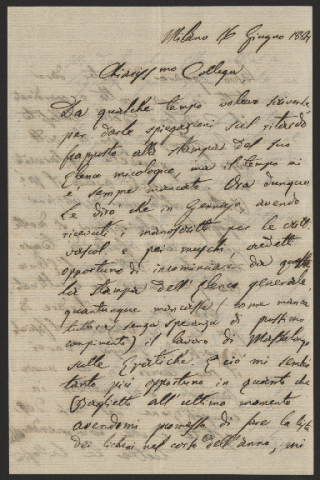 Milano 16 Giugno 1884
Chiariss.mo Collega
Da qualche tempo volevo scriverle
per darle spiegazioni sul ritardo
frapposto alla stampa del suo
Elenco micologico, ma il tempo mi
è sempre mancato. Ora dunque
Le dirò che in Gennajo avendo
ricevuti i manoscritti per le critt.
vascol. e pei muschi, credetti
opportuno di incominciare da quelli
la stampa dell'Elenco generale,
quantunque mancasse (come manca
tuttora) senza speranza di prossimo
compimento) il lavoro di
sulle Epatiche. E ciò mi sembrò
tanto più opportuno in quanto che
Baglietto all'ultimo momento
avendomi promesso di fare la lista
dei licheni nel corso dell'anno, mi